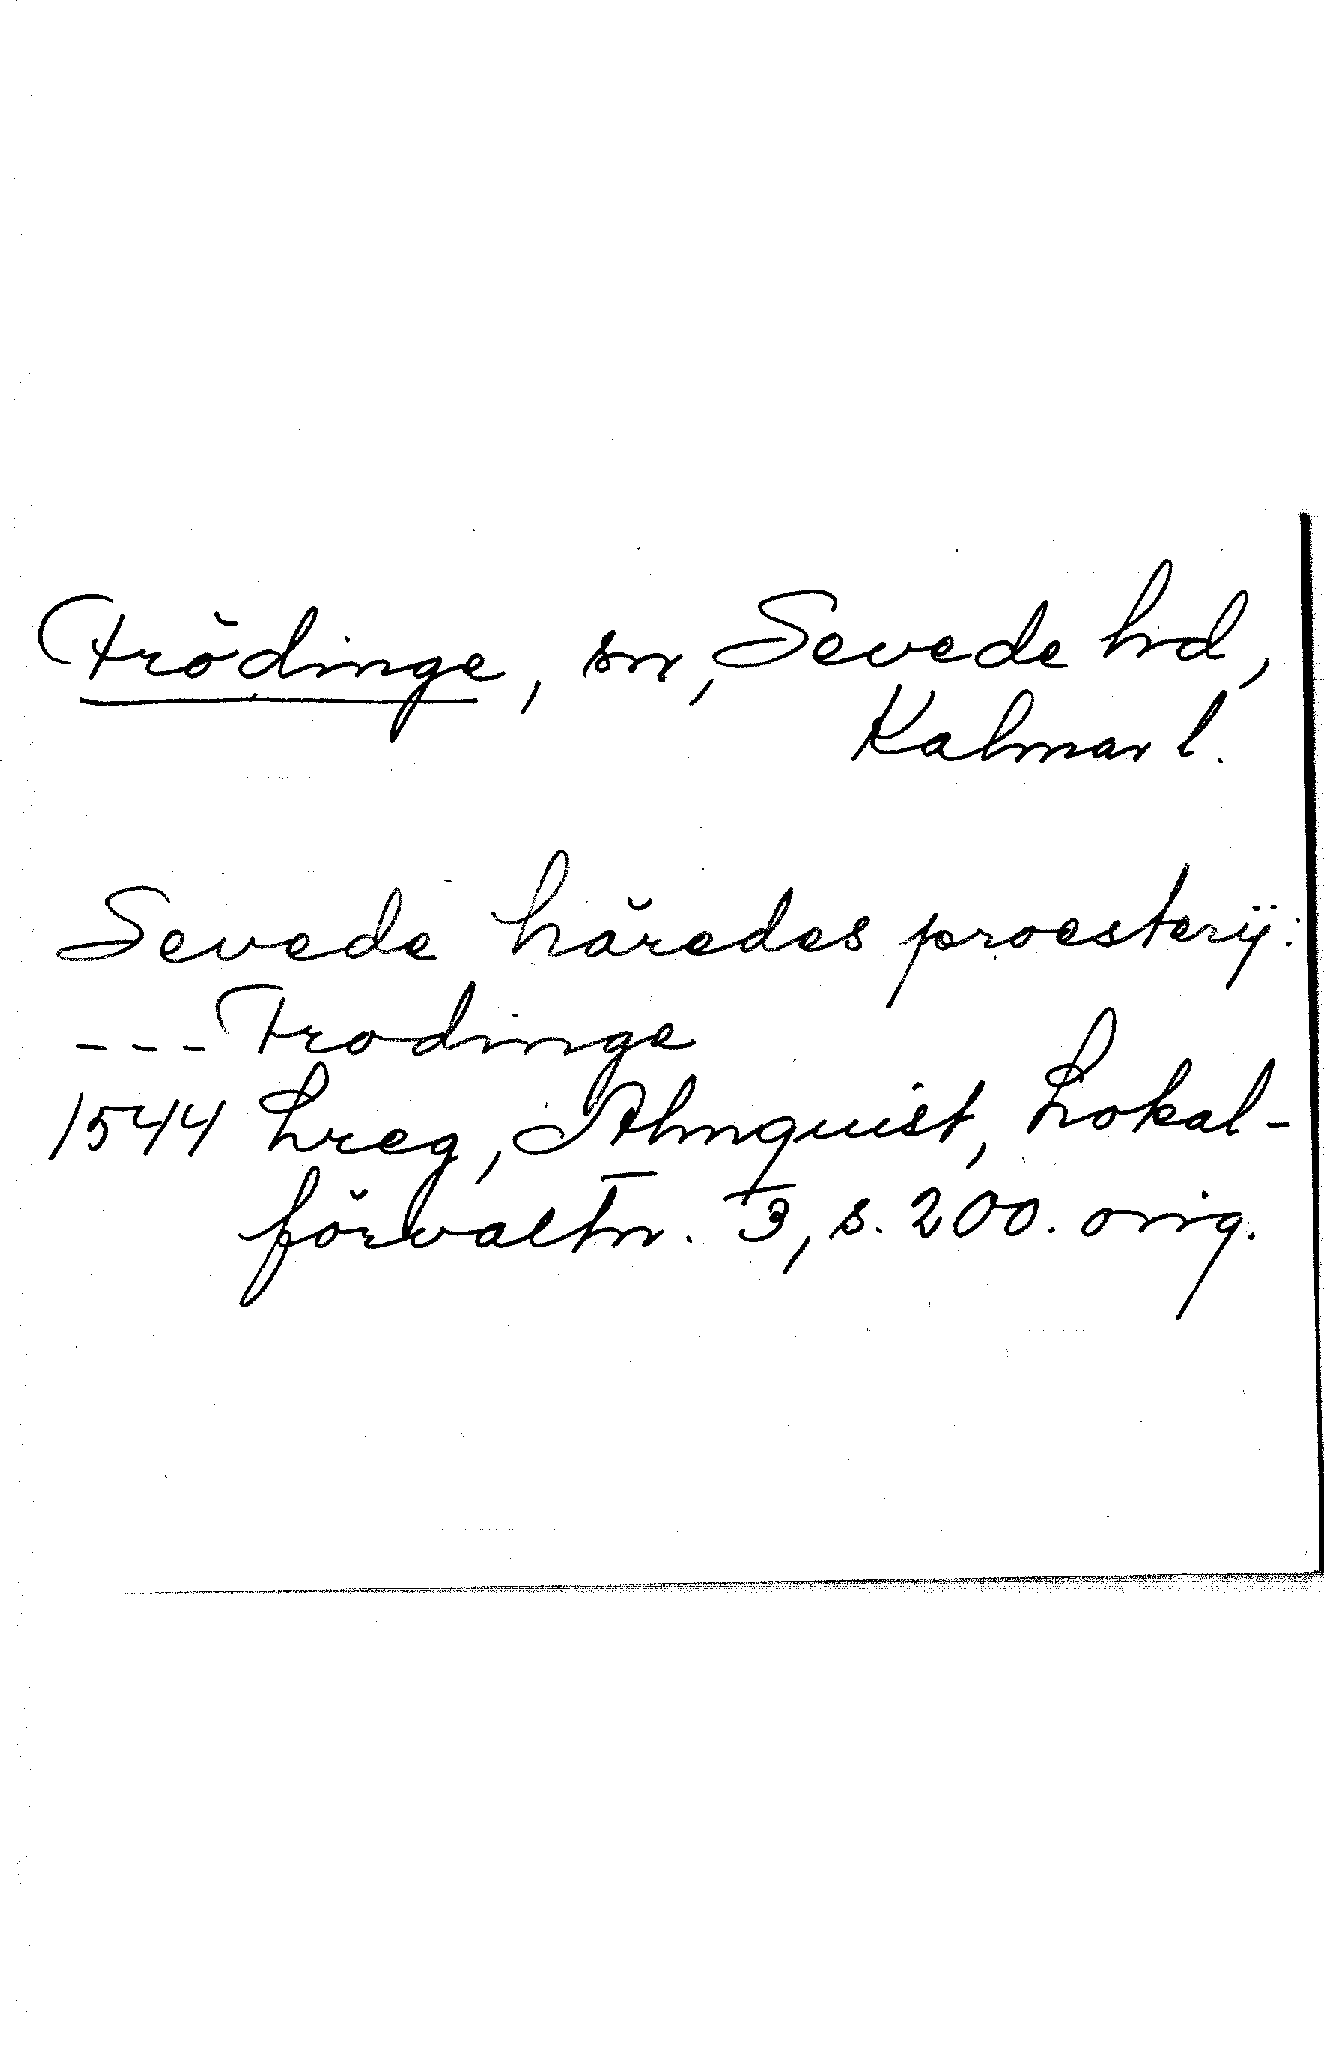 Frödinge, sn, Sevede hd,
Kalmar l.
Sevede häredes proesterij:
--- Frodinge
1544 Lreg, Almquist, Lokal-
förvaltn. 3, s. 200. orig.